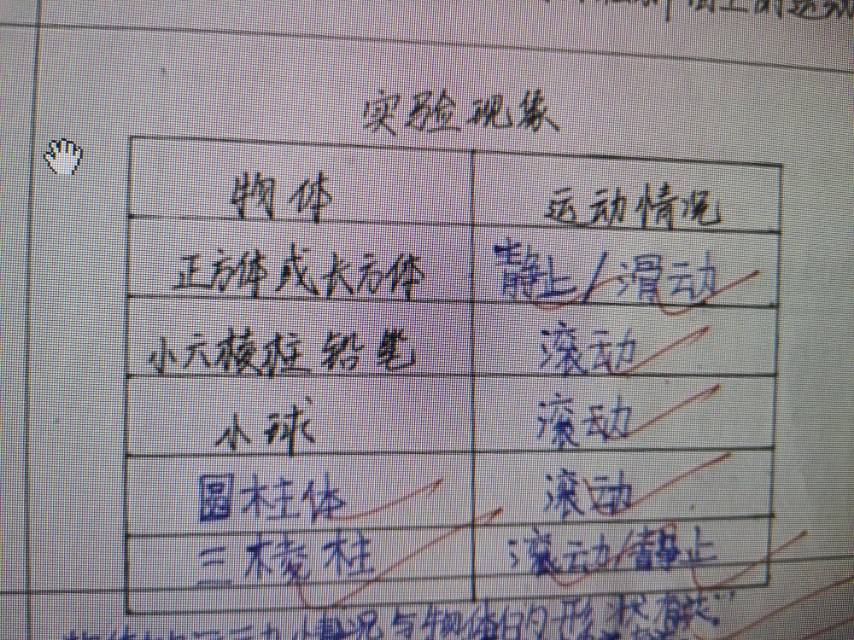 实验现象
物体 运动情况
正方体或长方体 静止/滑动
小六棱柱铅笔 滚动
小球 滚动
圆柱体 滚动
三棱柱 滚动/静止
情况与物体的形状有关